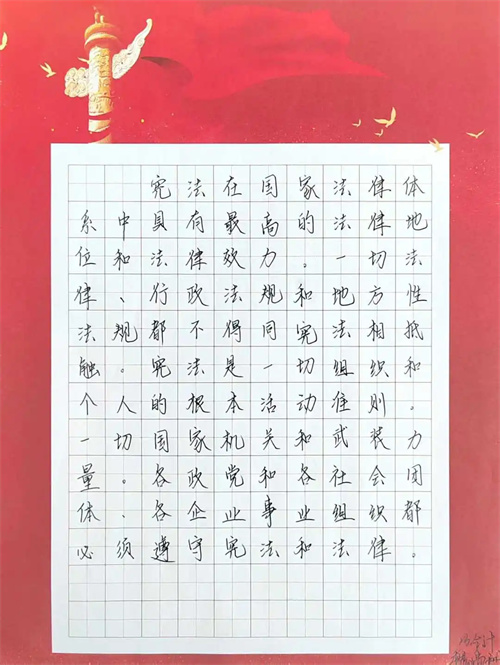 宪法在国家法律体
系中具有最高的法律地
位和法律效力。一切法
律、行政法规和地方性
法规都不得同宪法相抵
触。宪法是一切组织和
个人的根本活动准则。
一切国家机关和武装力
量。各政党和各社会团
体、各企业事业组织都
必须遵守宪法和法律。
会计